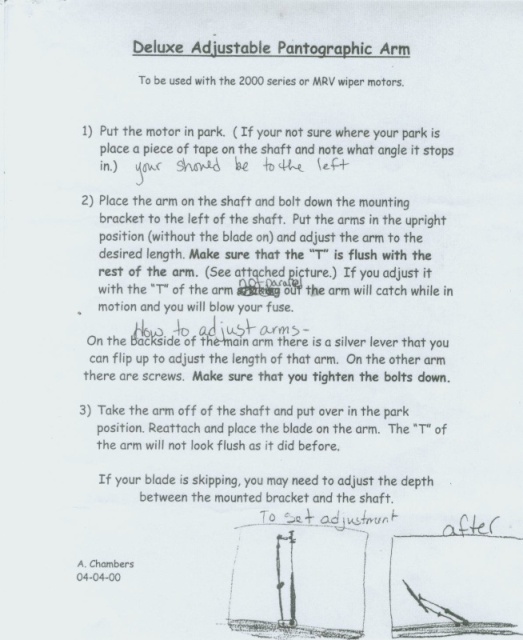 Deluxe Adjustable Pantographic Arm
To be used with the 2000 series or MRV wiper motors.
1) Put the motor in park. ( If your not sure where your park is
place a piece of tape on the shaft and note what angle it stops
in.) your should be to the left
2) Place the arm on the shaft and bolt down the mounting
bracket to the left of the shaft. Put the arms in the upright
position (without the blade on) and adjust the arm to the
desired length. Make sure that the "T" is flush with the
rest of the arm. (See attached picture.) If you adjust it
not paralel
with the "T" of the arm out the arm will catch while in
motion and you will blow your fuse.
How to adjust arms-
On the backside of the main arm there is a silver lever that you
can flip up to adjust the length of that arm. On the other arm
there are screws. Make sure that you tighten the bolts down.
3) Take the arm off of the shaft and put over in the park
position. Reattach and place the blade on the arm. The "T" of
the arm will not look flush as it did before.
If your blade is skipping, you may need to adjust the depth
between the mounted bracket and the shaft.
To set adjustment
after
A. Chambers
04-04-00